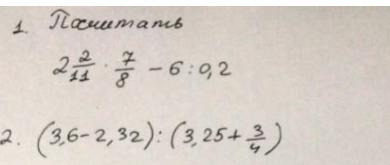 1. Посчитать
2 2/11 · 7/8 - 6 : 0,2
2. (3,6 - 2,32) : (3,25 + 3/4)